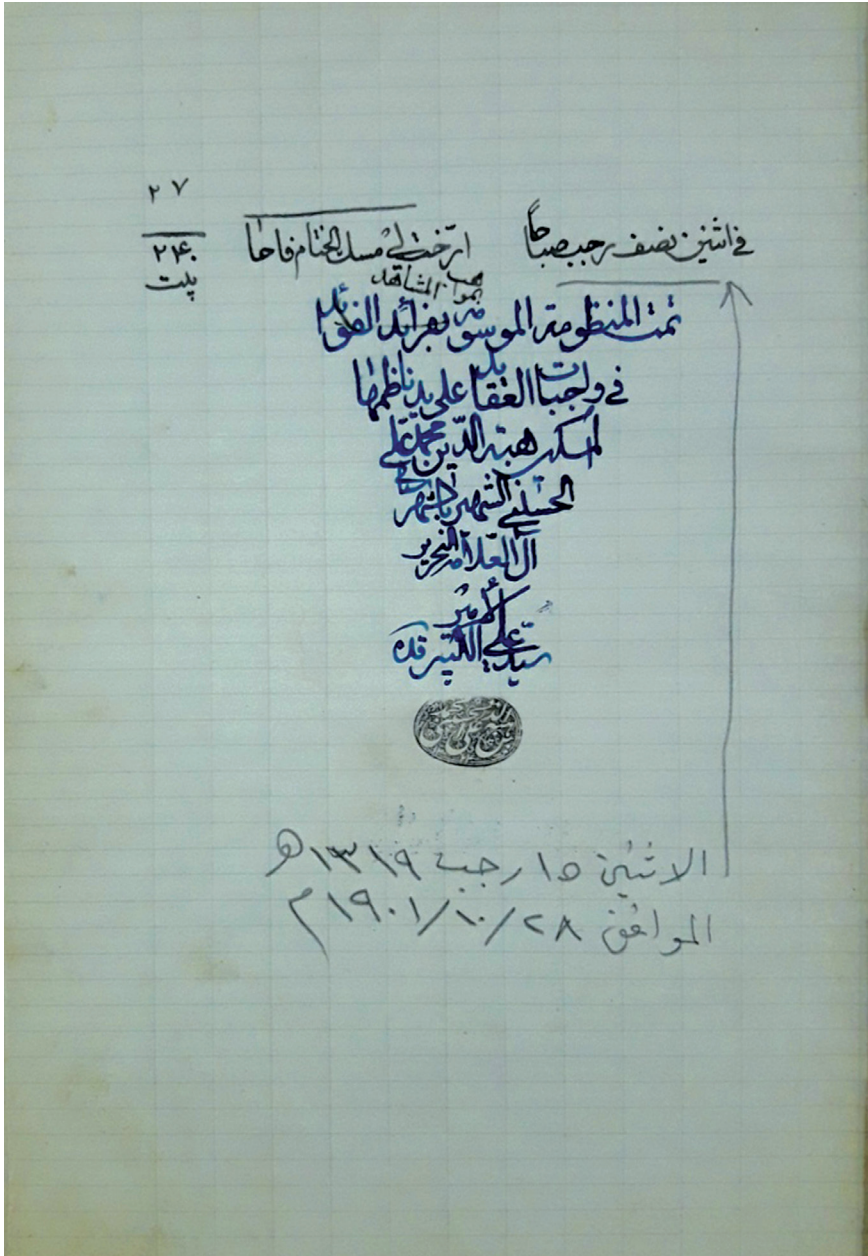 ٢٧
في اثنين نصف رجب صباحا ارّخت لي مسك الختام فاحا
٢٤٠
بيت
بمواهب المشاهد
تمت المنظومة الموسومة بفرائد الفوائد
في واجبات العقائد على يد ناظمها
هبة الدين محمد علي
الحسيني الشهير بالشهرستاني
آل العلامة النحرير
الأمير
سيد علي الكبير قده
الاثنين ١٥ رجب ١٣١٩ هـ
الموافق ٢٨/١٠/١٩٠١ م